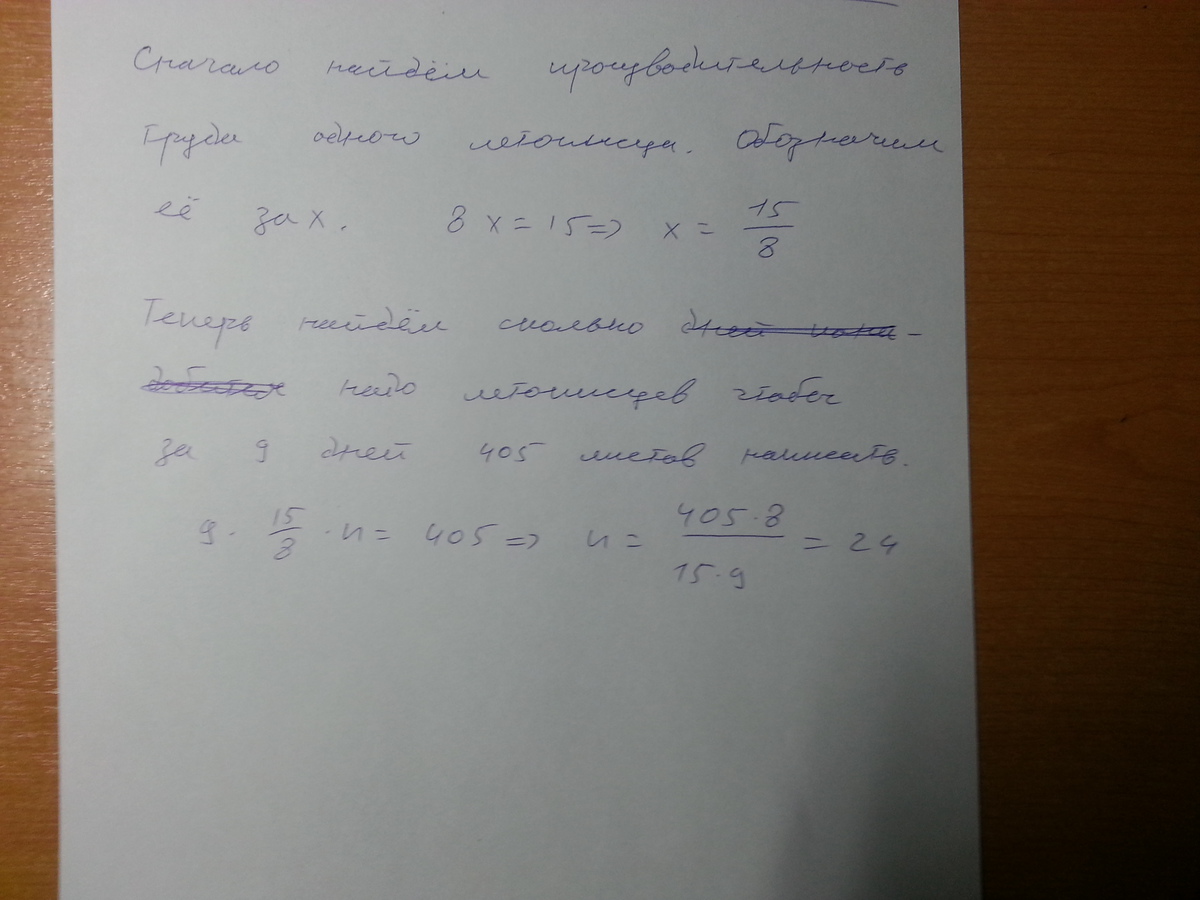 Сначало найдём производительность
труда одного летописца. Обозначим
её за x. 8x = 15 => x = 15/8
Теперь найдём сколько дней пона-
добится надо летописцев чтобы
за 9 дней 405 листов написать.
9 · 15/8 · n = 405 => n = 405·8/15·9 = 24